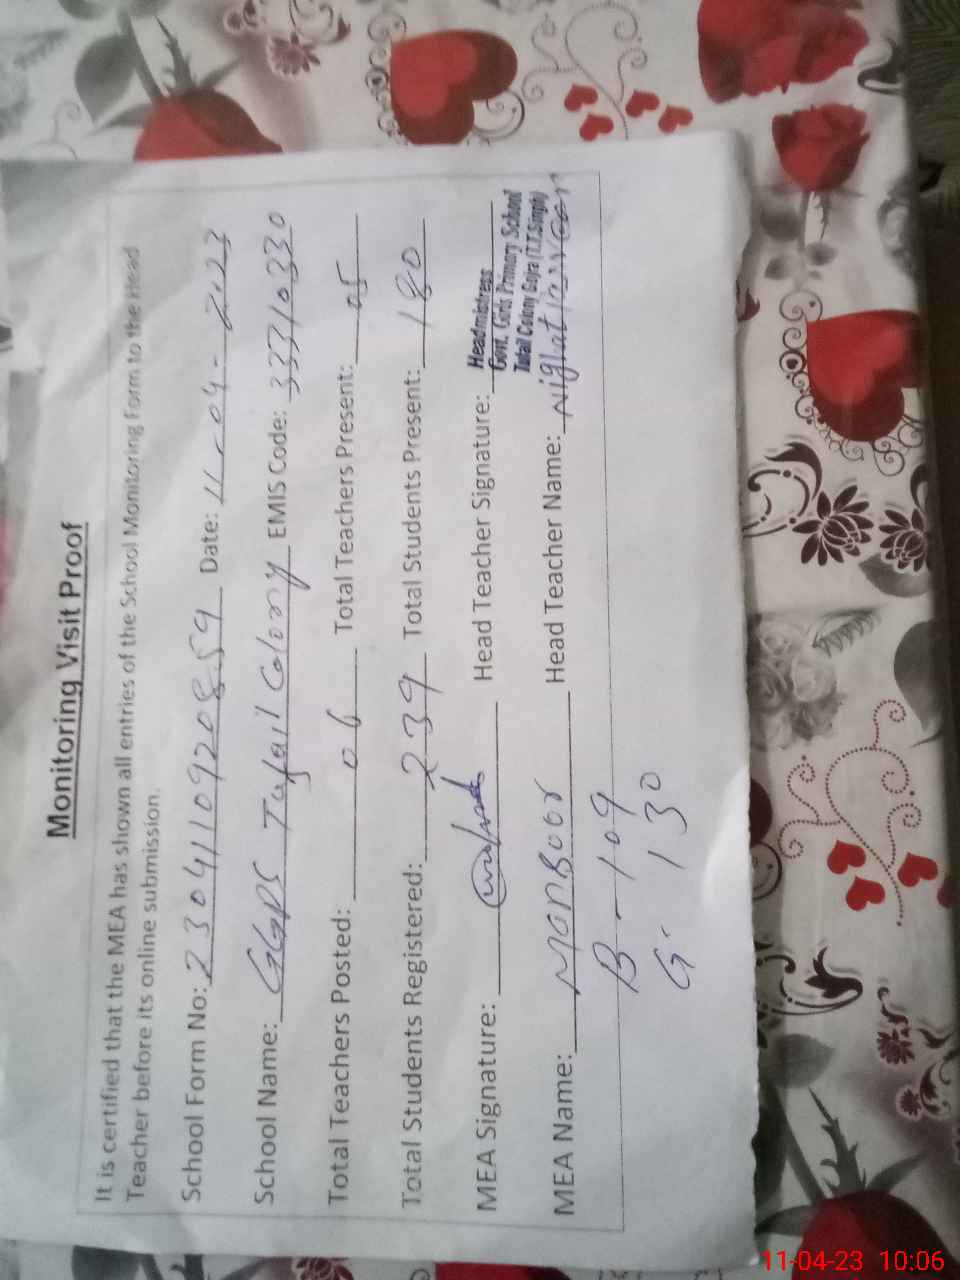 Monitoring Visit Proof
It is certified that the MEA has shown all entries of the School Monitoring Form to the Head
Teacher before its online submission.
School Form No: 2304110920859 Date: 11-04-2023
School Name: GGPS Tufail Colony EMIS Code: 33310330
Total Teachers Posted: 06 Total Teachers Present: 05
Total Students Registered: 239 Total Students Present: 180
MEA Signature: Head Teacher Signature:
Headmistress
Govt. Girls Primary School
Tufail Colony Gojra (T.T.Singh)
MEA Name: MANBOOR Head Teacher Name:
B-109
G-130
11-04-23 10:06